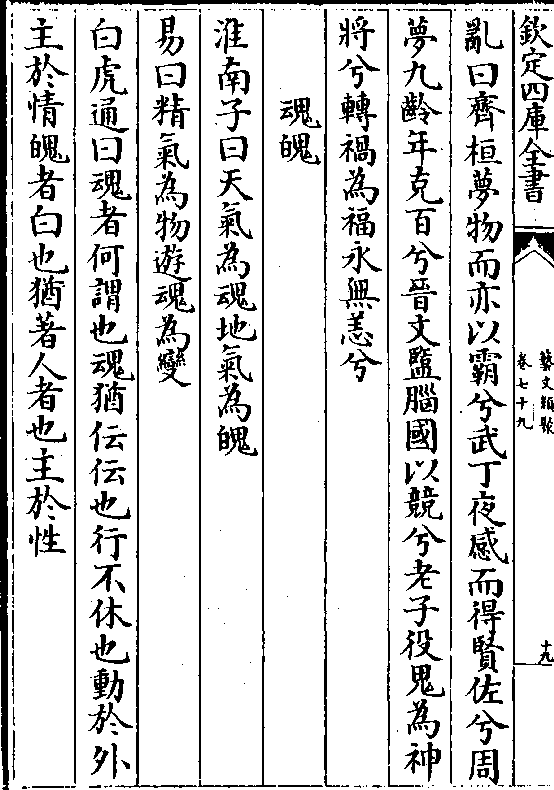 欽定四庫全書
藝文類聚
卷七十九
十九
亂曰齊桓夢物而亦以霸兮武丁夜感而得賢佐兮周
夢九齡年克百兮晉文鹽腦國以競兮老子役鬼為神
將兮轉禍為福永無恙兮
魂魄
淮南子曰天氣為魂地氣為魄
易曰精氣為物遊魂為變
白虎通曰魂者何謂也魂猶伝伝也行不休也動於外
主於情魄者白也猶著人者也主於性